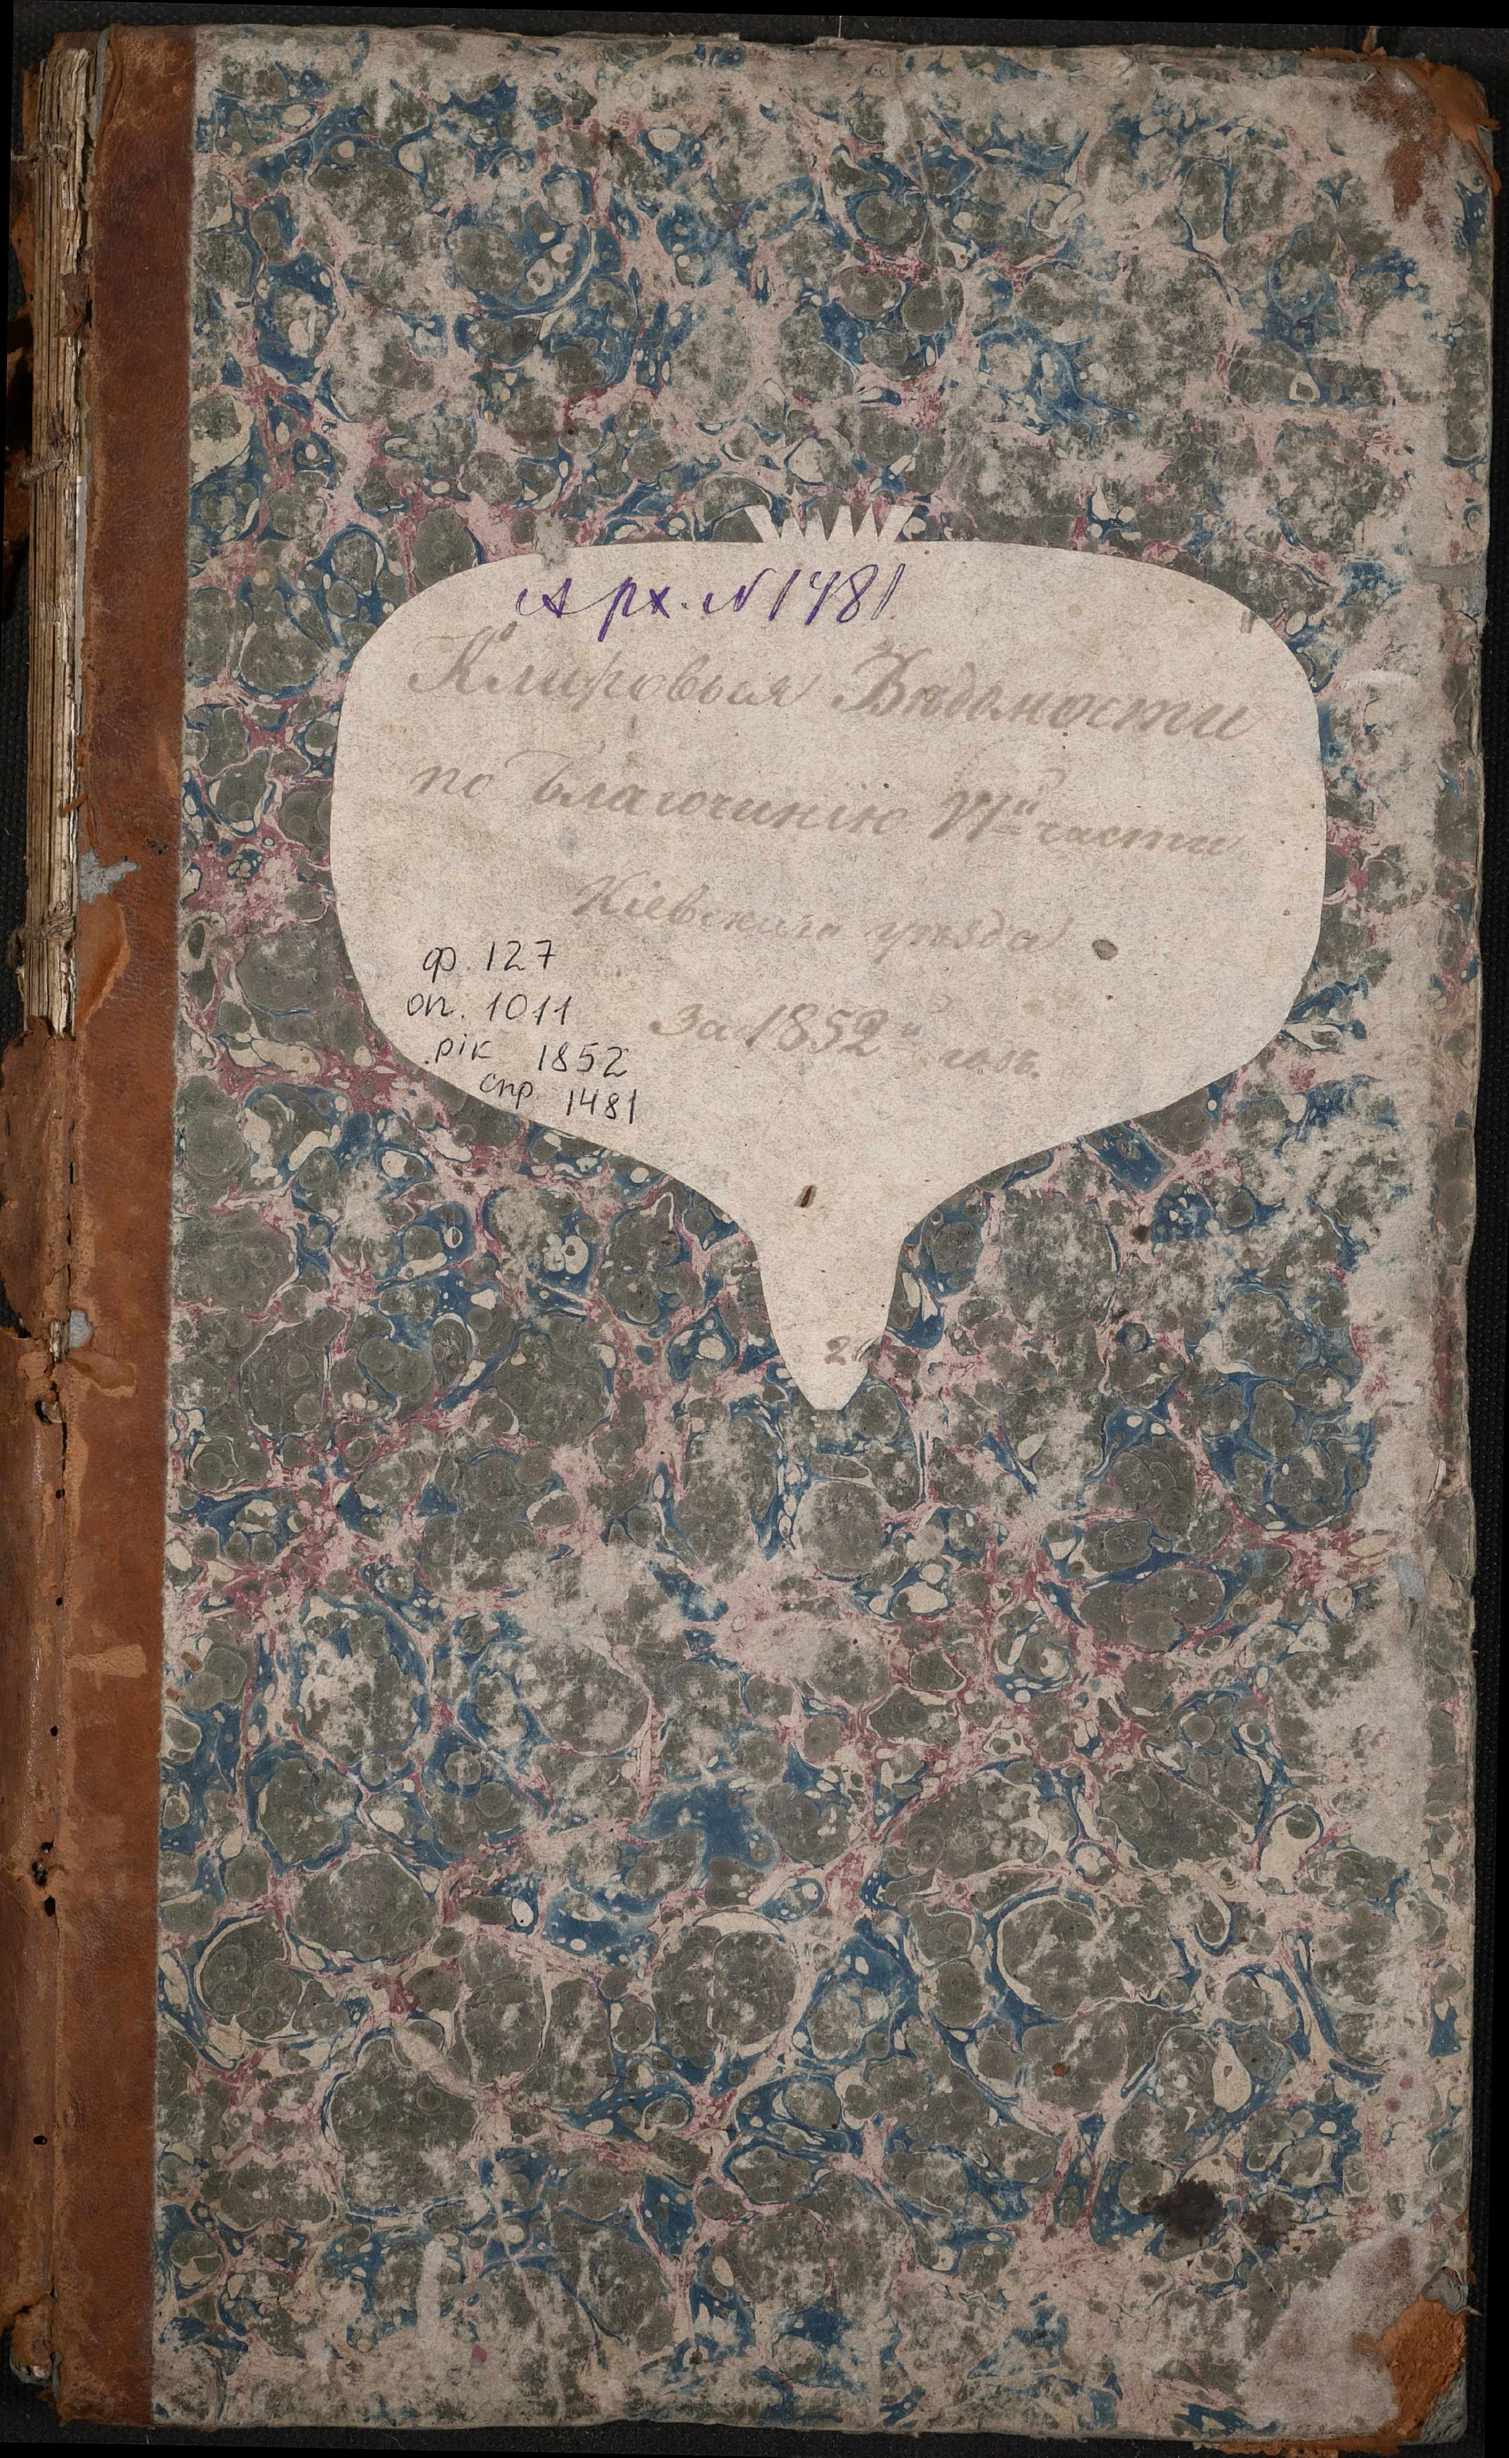 Арх. N 1481.
Клировыя Вѣдомости
по Благочинію VIй части
Кіевскаго уѣзда
за 1852 годъ.
ф. 127
оп. 1011
рік 1852
спр 1481